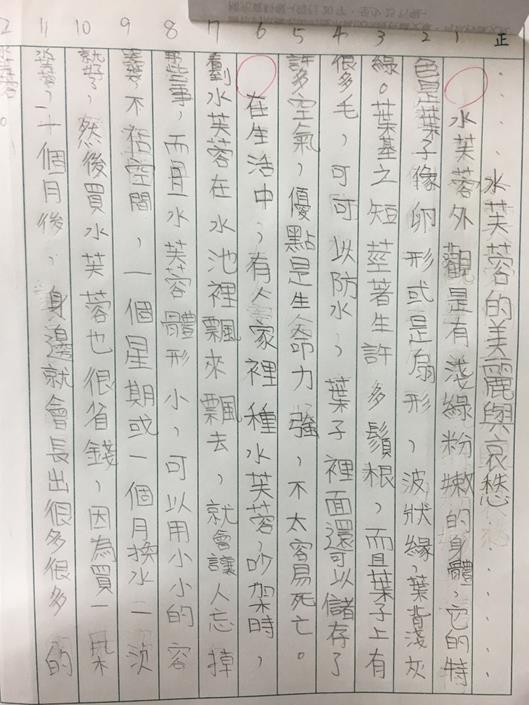 正
水芙蓉的美麗與哀愁
1 水芙蓉外觀是有淺綠粉嫩的身體，它的特
2 色是葉子像卵形或是扇形，波狀緣，葉背淺灰
3 綠。葉基之短莖著生許多鬚根，而且葉子上有
4 很多毛，可可以防水，葉子裡面還可以儲存了
5 許多空氣，優點是生命力強，不太容易死亡。
6 在生活中，有人家裡種水芙蓉，吵架時，
7 看到水芙蓉在水池裡飄來飄去，就會讓人忘掉
8 那些事，而且水芙蓉體形小，可以用小小的容
9 不佔空間，一個星期或一個月換水一次
10 就好了，然後買水芙蓉也很省錢，因為買一
11 一個月後，身邊就會長出很多很多的
2